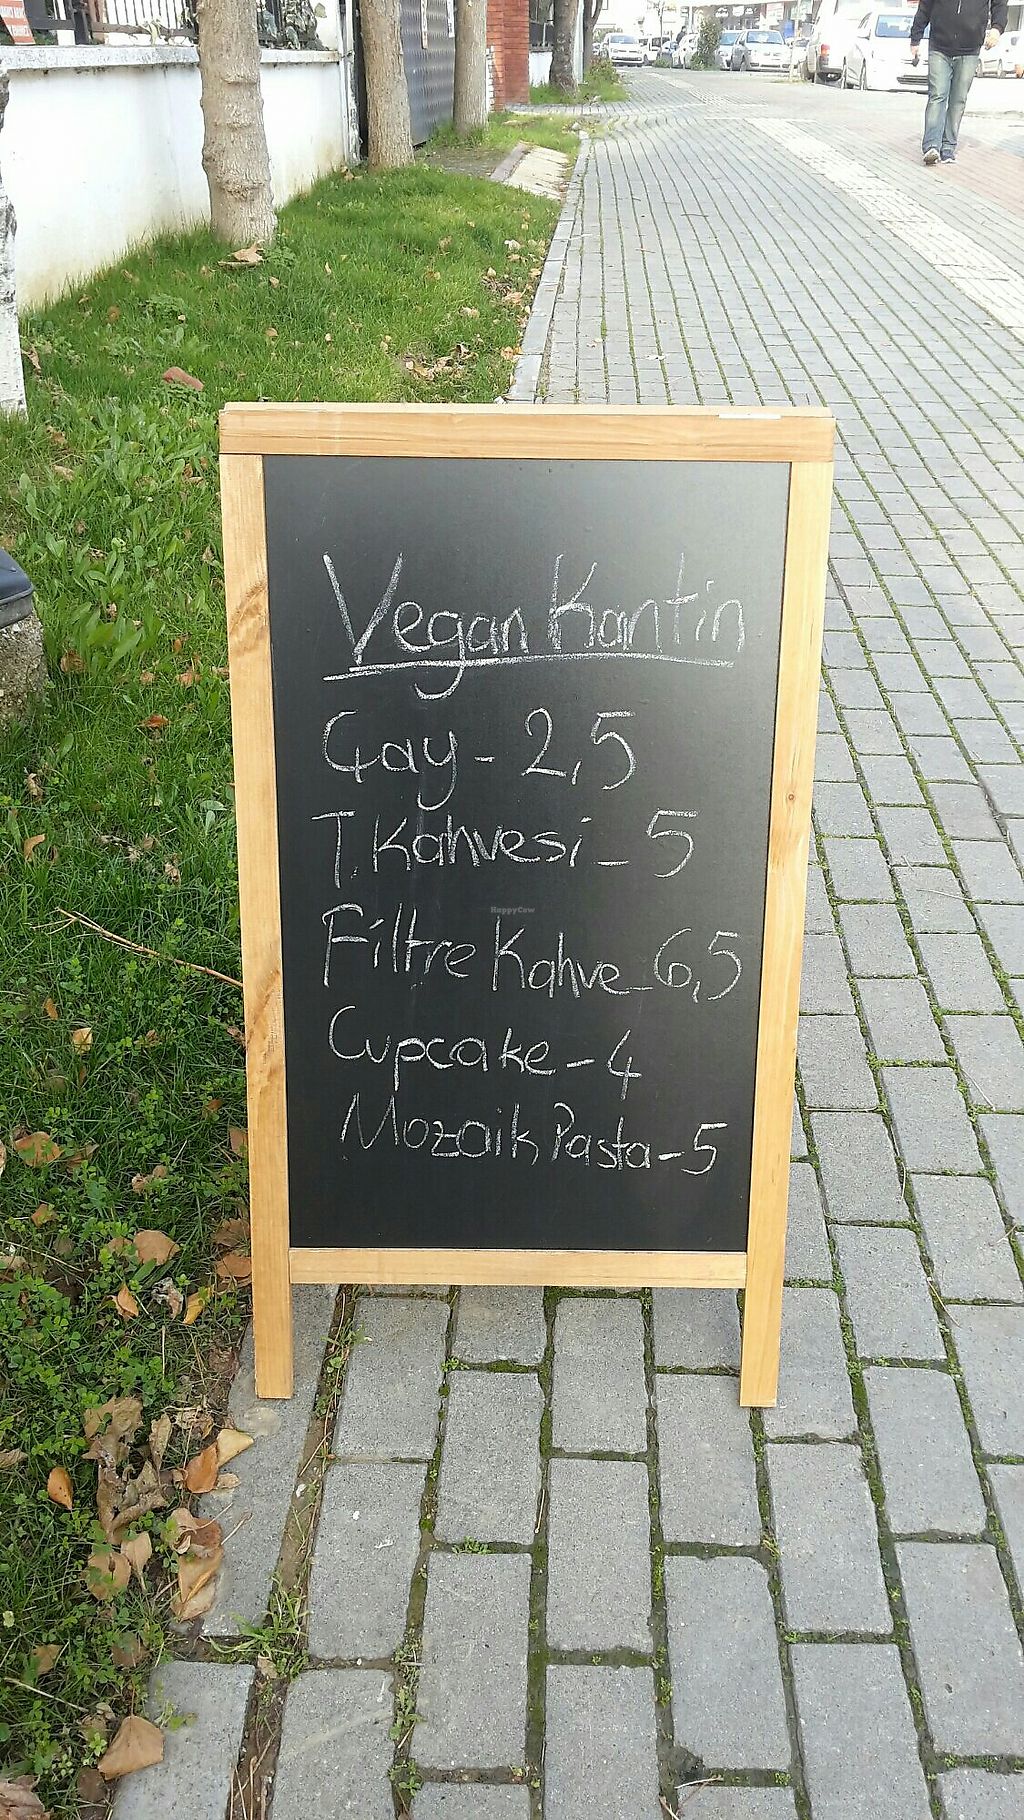 Vegan Kantin
Çay - 2,5
T. Kahvesi - 5
Filtre Kahve - 6,5
HappyCow
Cupcake - 4
Mozaik Pasta - 5